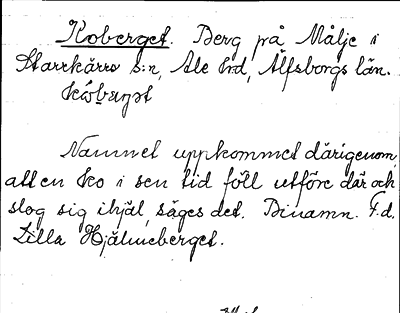 Koberget. Berg på Målje i
Starrkärrs s:n, Ale hd, Älfsborgs län.
Namnet uppkommet därigenom,
att en ko i sen tid föll utföre där och
slog sig ihjäl, säges det. Binamn. F.d.
Lilla Hjälmeberget.